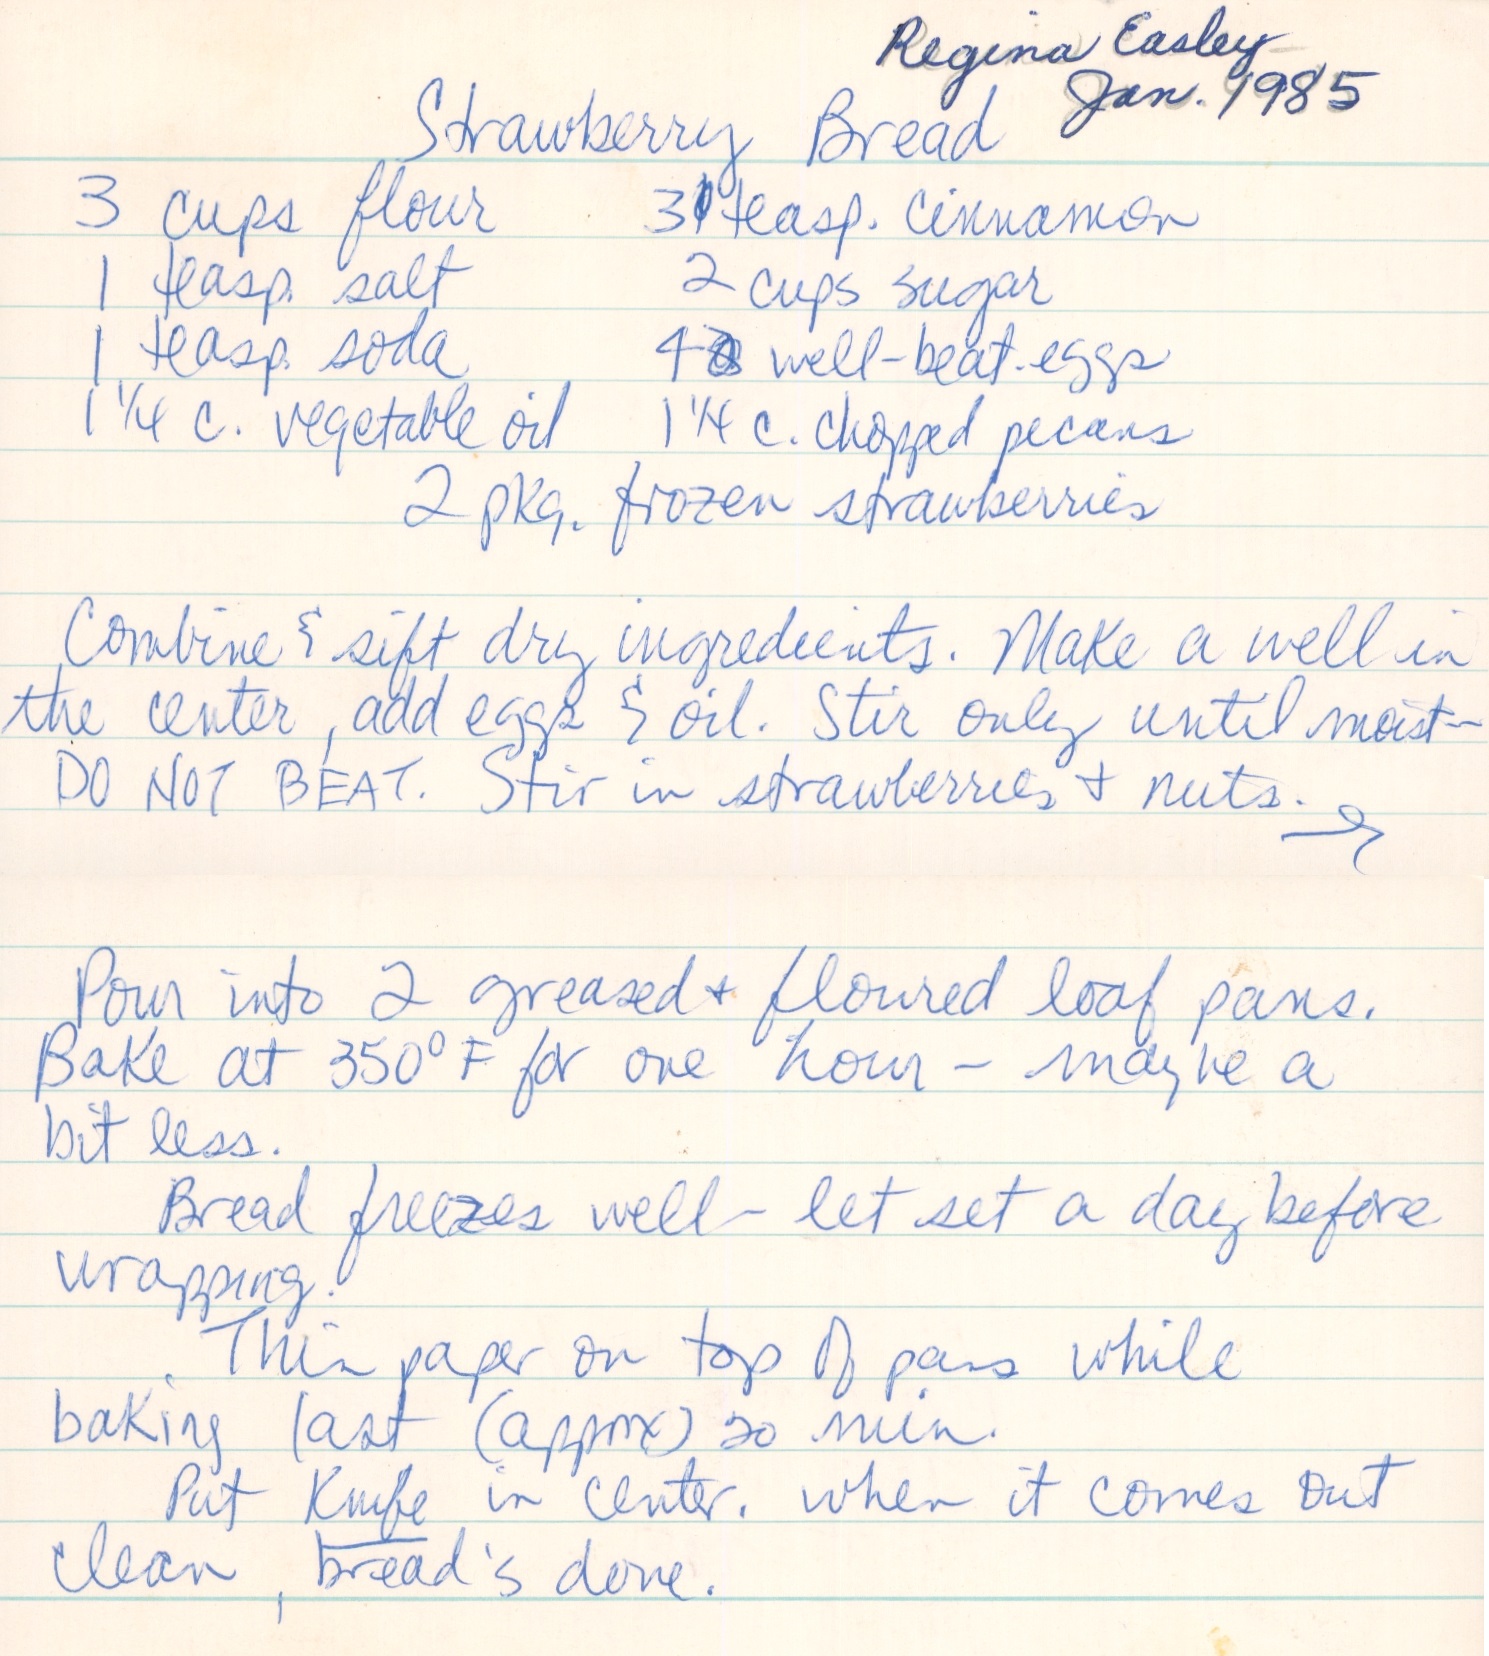 Regina Easley
Jan. 1985
Strawberry Bread
3 cups flour 3 teasp. cinnamon
1 teasp. salt 2 cups sugar
1 teasp. soda 4 well-beat. eggs
1 1/4 c. vegetable oil 1 1/4 c. chopped pecans
2 pkg. frozen strawberries
Combine & sift dry ingredients. Make a well in
the center, add eggs & oil. Stir only until moist-
DO NOT BEAT. Stir in strawberries + nuts. →
Pour into 2 greased + floured loaf pans.
Bake at 350° F for one hour - maybe a
bit less.
Bread freezes well - let set a day before
wrapping.
Thin paper on top of pans while
baking last (approx) 20 min.
Put Knife in center. when it comes out
clean, bread's done.